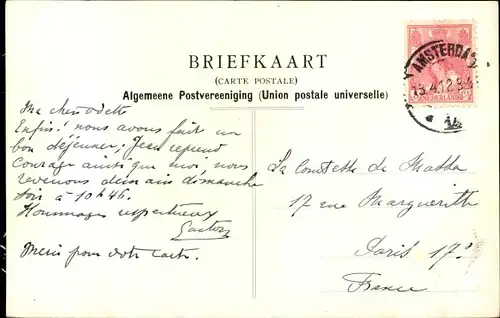 BRIEFKAART
(CARTE POSTALE)
Algemeene Postvereeniging (Union postale universelle)
AMSTERDA
13.4.12 9.
NEDERLAND
Ma chère Odette
Enfin! nous avons fait un
bon déjeuner; Jean reprend
courage ainsi que moi nous
revenons demain dimanche
soir à 10h46.
Hommages respectueux
Gaston
Merci pour votre carte.
La Comtesse de
17 rue Margueritte
Paris 17e
France